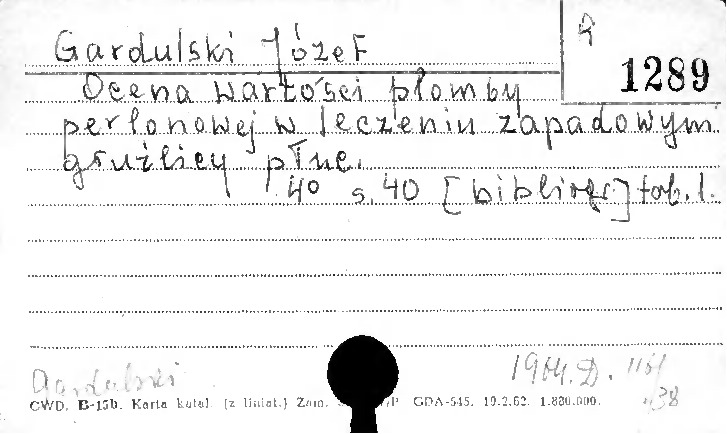 Gardulski Józef
R
1289
Ocena wartości plomby
perlonowej w leczeniu zapadowym
gruźlicy płuc.
4° s. 40 [bibliogr.] tab. 1.
Gardulski
1964.D. 1161
38
CWD. B-15b. Karta katal. (z liniat.) Zam. GDA-545. 19.2.62. 1.880.000.